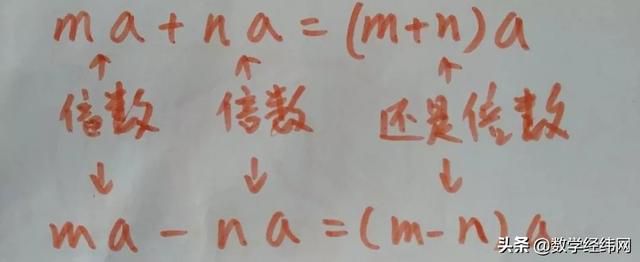 ma+na=(m+n)a
↑ ↑ ↑
倍数 倍数 还是倍数
↓ ↓ ↓
ma-na=(m-n)a
头条 @数学经纬网